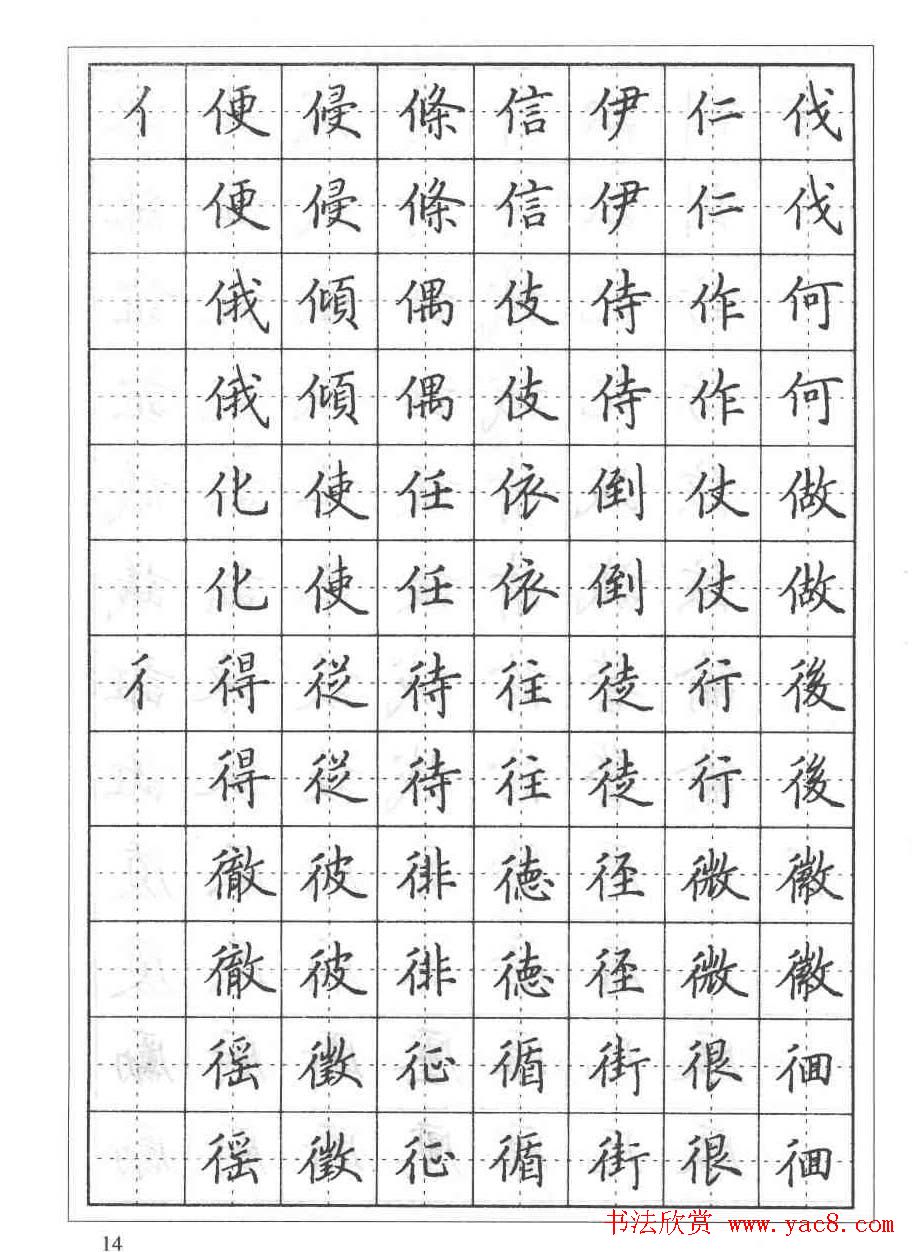 亻 便 侵 條 信 伊 仁 伐
便 侵 條 信 伊 仁 伐
俄 傾 偶 伎 侍 作 何
俄 傾 偶 伎 侍 作 何
化 使 任 依 倒 仗 做
化 使 任 依 倒 仗 做
彳 得 從 待 往 徒 行 後
得 從 待 往 徒 行 後
徹 彼 徘 德 径 微 徽
徹 彼 徘 德 径 微 徽
徭 徵 征 循 街 很 徊
徭 徵 征 循 街 很 徊
书法欣赏 www.yac8.com
14